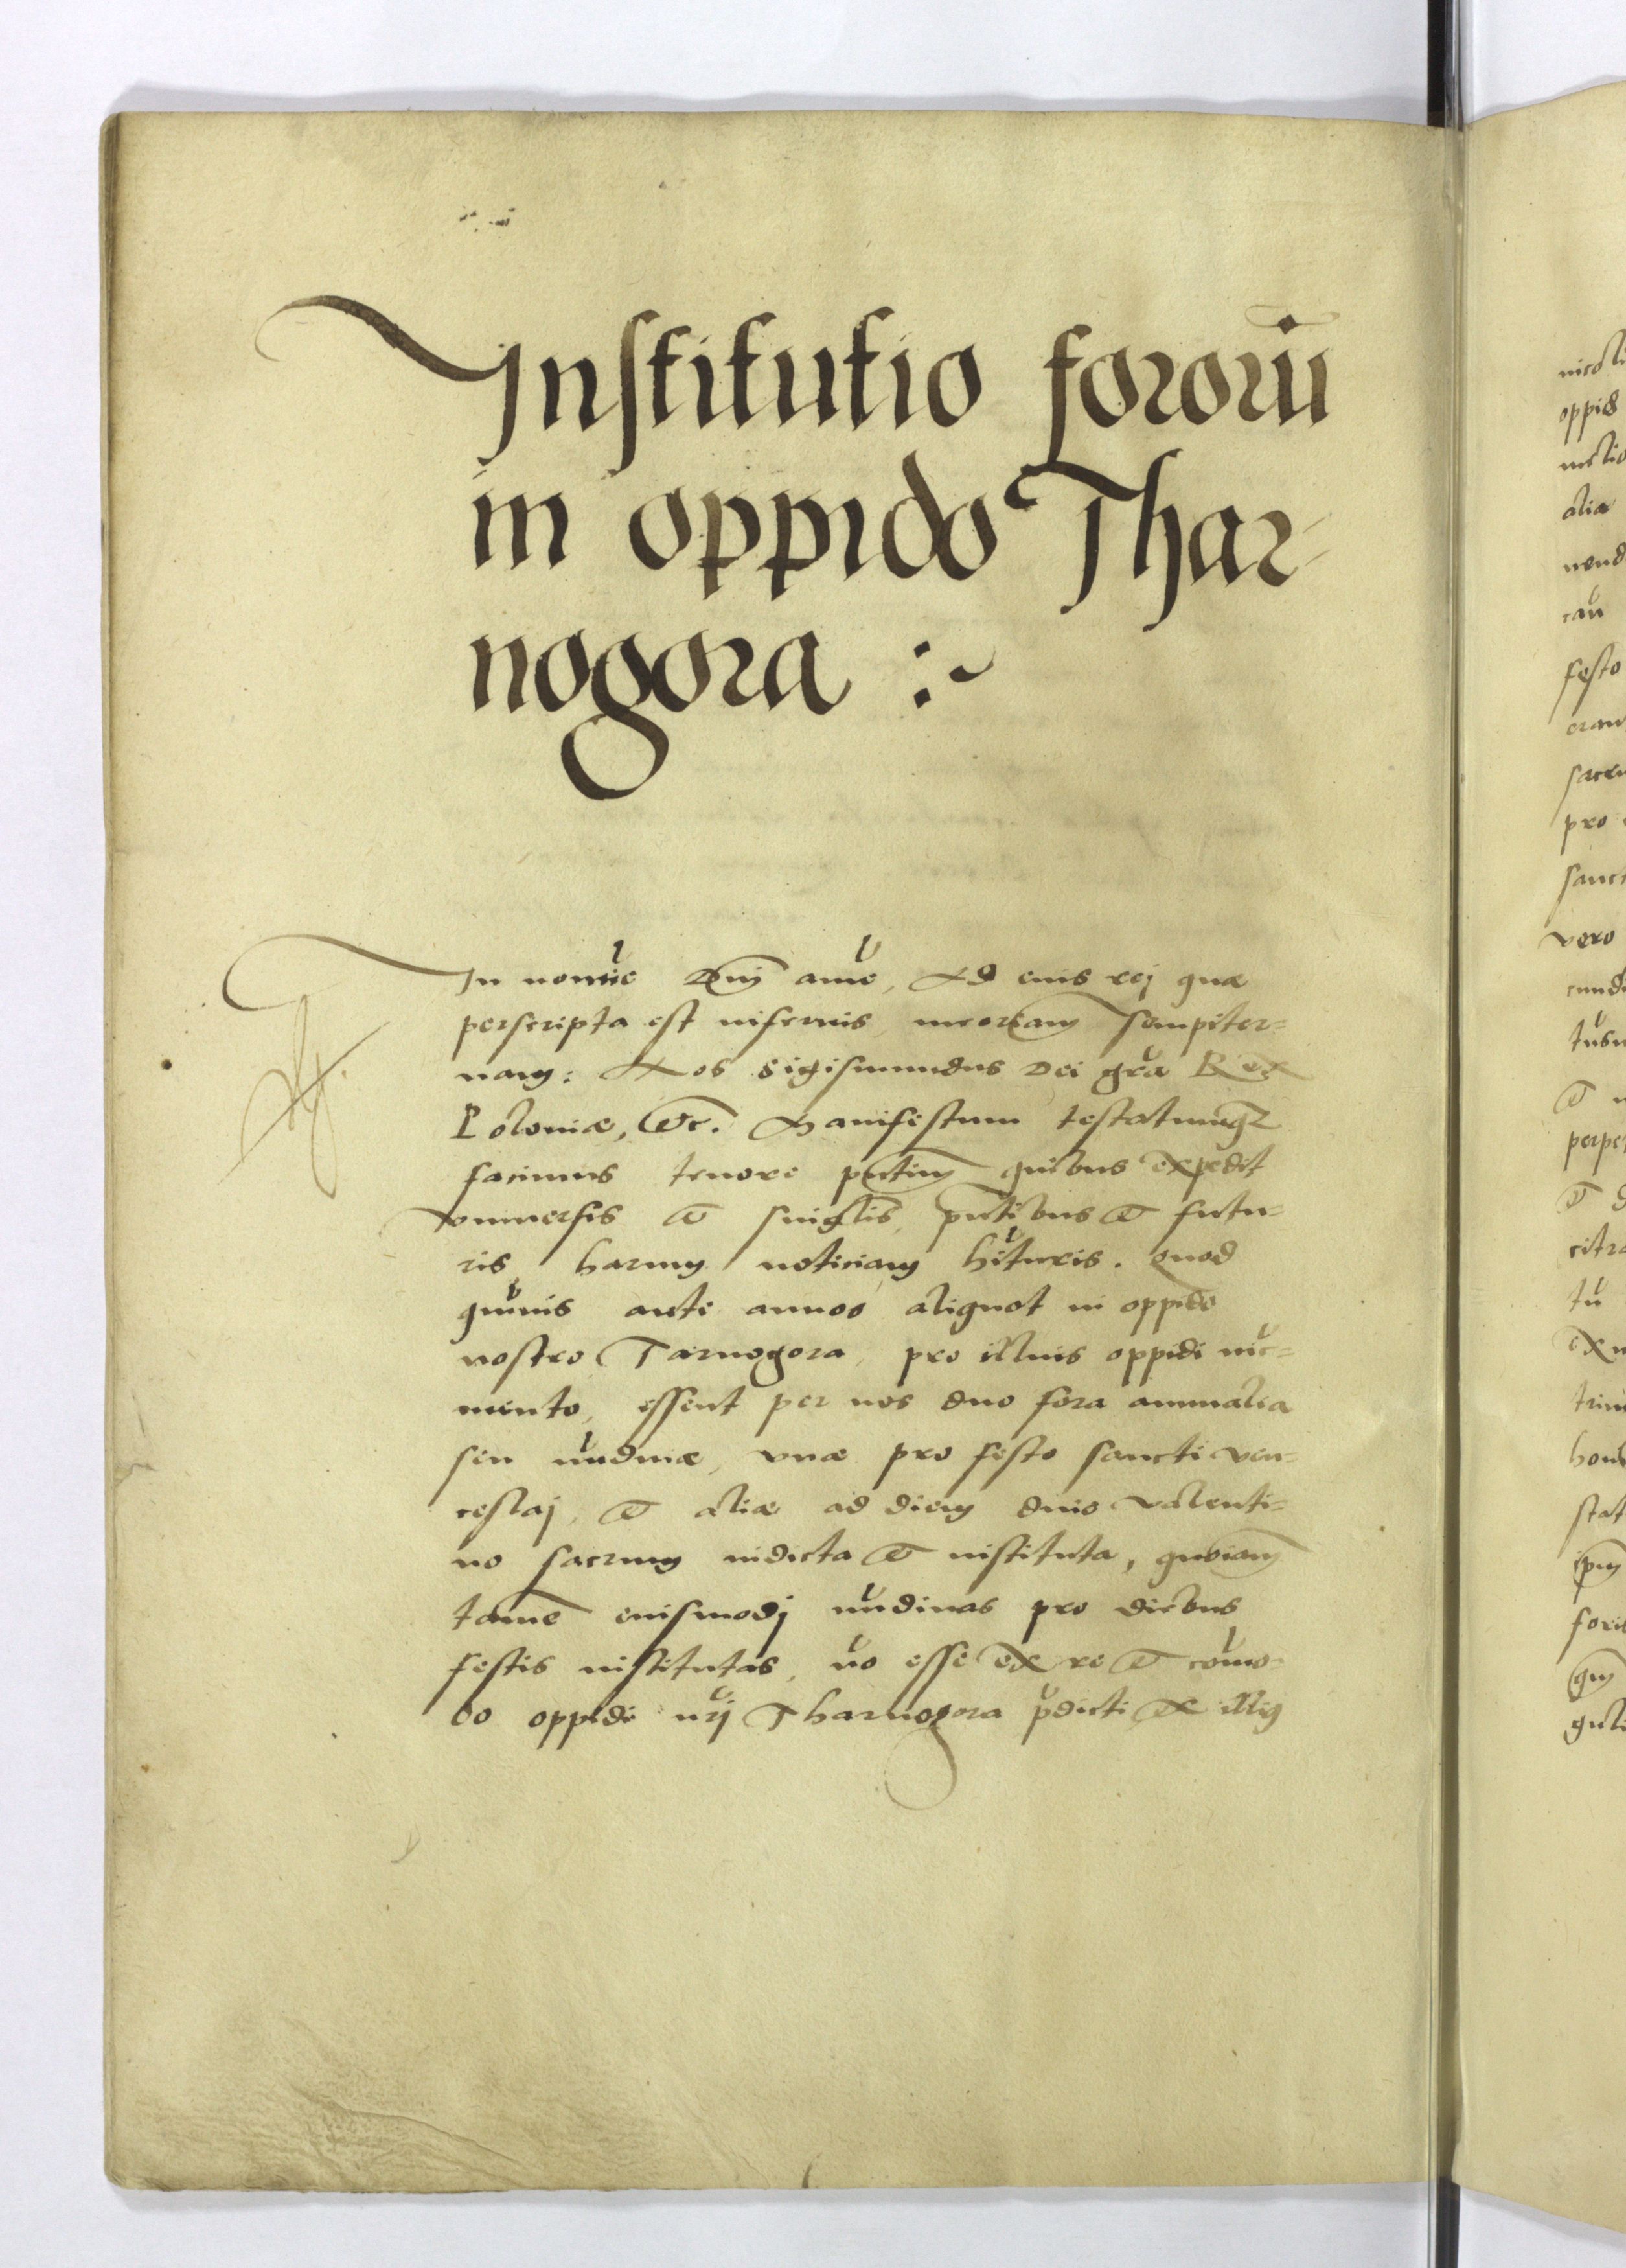 Institutio fororū
in oppido Thar-
nogora :~
In nomīe Dnj amē, Ad eius rej quæ
perscripta est inferius, meoriam sempiter=
nam: Nos Sigismundus Dei gra Rex
Poloniæ, etc. Manifestum testatumq3
facimus tenore pntium quibus expedit
vniuersis et singlis, pntibus et futu=
ris harum noticiam hituris. Quod
quūis ante annos aliquot in oppido
nostro Tarnogora, pro illius oppidi inc=
mento, essent per nos duo fora annualia
seu nūdinæ, vnæ pro festo sancti Ven=
ceslaj, et aliæ ad diem diuo Valenti=
no sacrum indicta et instituta, quoniam
tamē eiusmodj nūdinas pro diebus
festis institutas, nō esse ex re et cōmo=
do oppidi nrj Tharnogora pdicti et illig
nicoli
oppid
alia
festo
pro
vero
tū